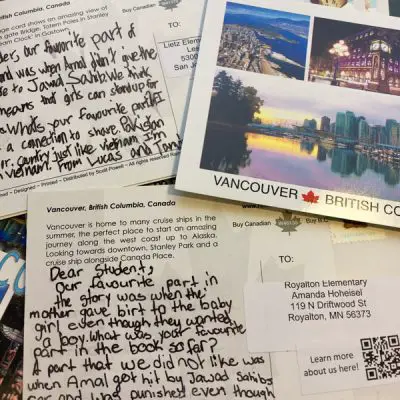 British Columbia, Canada
age card shows an amazing view of
Gate Bridge, Totem Poles in Stanley
Steam Clock' in Gastown.
Buy Canadian
TO:
Lietz Elementary
Les
5300
San Jo
our favourite part of
and was when Amal didn't give the
to Jawad Sahib. We think
means and girls can stand up for
What's your favourite part?
a connection to share. Pakistan
country just like vietnam. I'm
vietnam. From Lucas and
Designed ~ Printed ~ Distributed by Scott Powell ~ All rights reserved
VANCOUVER BRITISH CO
Vancouver, British Columbia, Canada
Vancouver is home to many cruise ships in the
summer, the perfect place to start an amazing
journey along the west coast up to Alaska.
Looking towards downtown, Stanley Park and a
cruise ship alongside Canada Place.
Buy Canadian
TO:
Royalton Elementary
Amanda Hoheisel
119 N Driftwood St
Royalton, MN 56373
Learn more
about us here!
Dear Student,
Our favourite part in
the story was when the
mother gave birt to the baby
girl even though they wanted
a boy. What was your favourite
part in the book so far?
A part that we did not like was
when Amal got hit by Jawad Sahibs
car and was punished even though